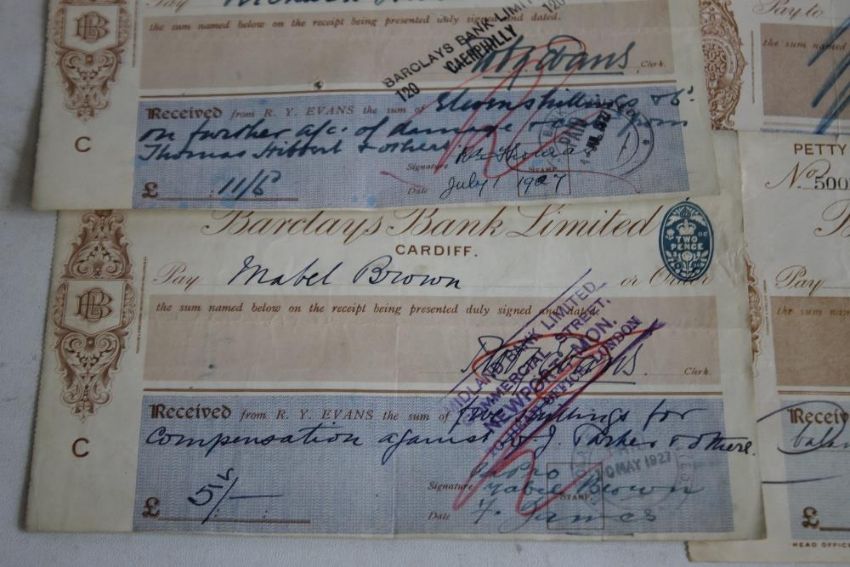 Pay
the sum named below on the receipt being presented duly signed and dated.
BARCLAYS BANK LIMITED
120 CAERPHILLY 120
Evans
Clerk.
C
Received from R. Y. EVANS the sum of Eleven shillings & 6d
on further a/c. of damage
Thomas Hibbert & others
PAID
Signature
STAMP.
£ 11/6
Date July 1 1927
Barclays Bank Limited
CARDIFF.
TWO PENCE
Pay Mabel Brown or Order
the sum named below on the receipt being presented duly signed and dated
MIDLAND BANK LIMITED
COMMERCIAL STREET,
NEWPORT, MON.
LONDON
R. Y. Evans
Clerk.
C
Received from R. Y. EVANS the sum of five shillings for
compensation against J. Parker & others.
£ 5/-
Signature Mabel Brown
STAMP.
MAY 1927
Date F. James
Pay to
the sum named
PETTY
No. 500
Pay
the sum named
Received
£
HEAD OFFIC